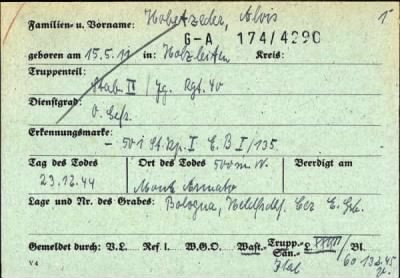 Familien- u. Vorname: Hobetzeder, Alois
G-A 174/4290
geboren am 15.5.11 in: Holzleiten Kreis:
Truppenteil:
Stab II / Jg. Rgt. 40
Dienstgrad:
O. Gefr.
Erkennungsmarke:
- 501 St. Kp. I. E. B I/135.
Tag des Todes Ort des Todes 500 m N. Beerdigt am
23.12.44 Monte
Lage und Nr. des Grabes: Bologna,
Gemeldet durch: V.L. Ref I. W.G.O. Wast.- Trupp.- San.- Bl.
Ital 60
V 4